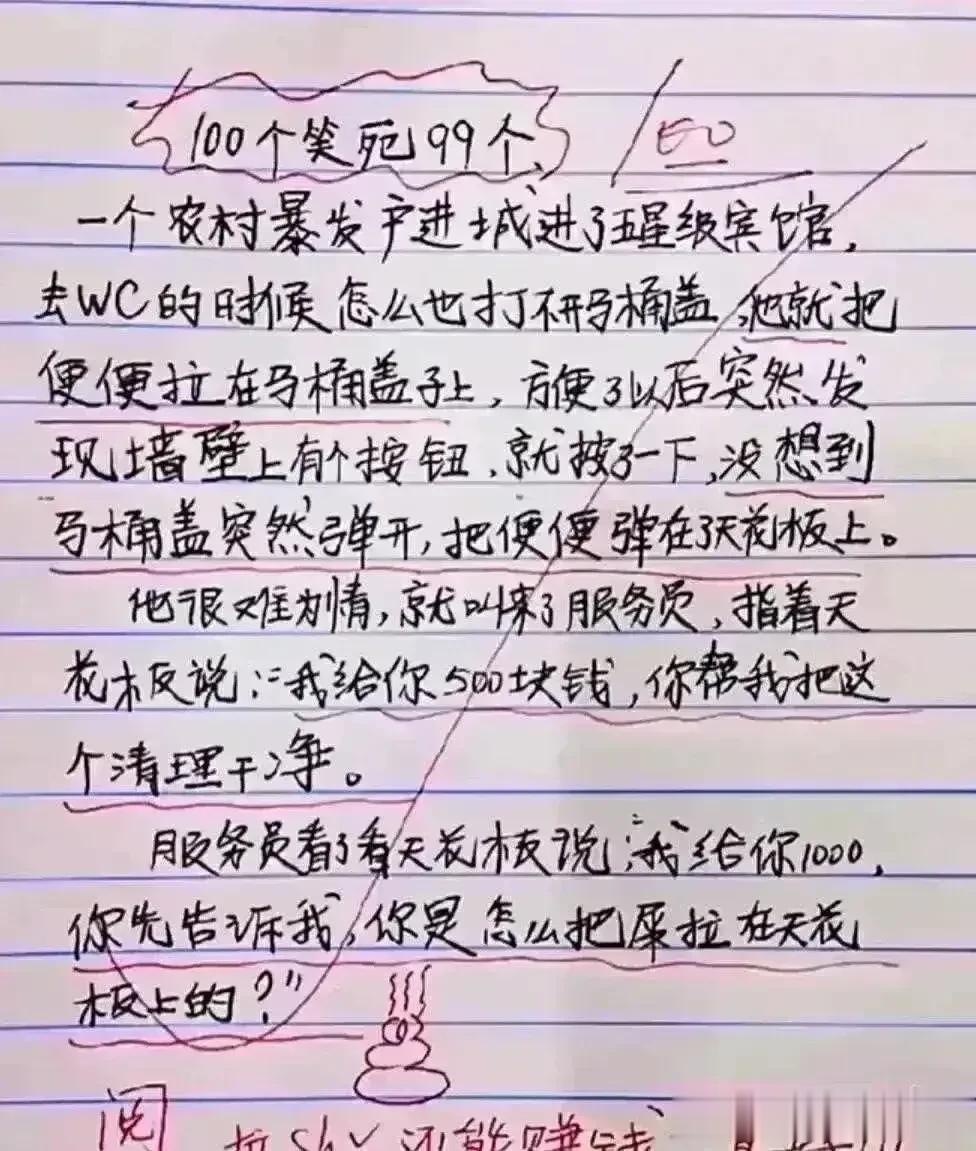 100个笑死99个、
150
一个农村暴发户进城进了五星级宾馆，
去WC的时候怎么也打不开马桶盖，他就把
便便拉在马桶盖子上，方便了以后突然发
现墙壁上有个按钮，就按了一下，没想到
马桶盖突然弹开，把便便弹在了天花板上。
他很难为情，就叫来了服务员，指着天
花板说："我给你500块钱，你帮我把这
个清理干净。
服务员看了看天花板说："我给你1000，
你先告诉我，你是怎么把屎拉在天花
板上的？"
阅
拉shi还能赚钱